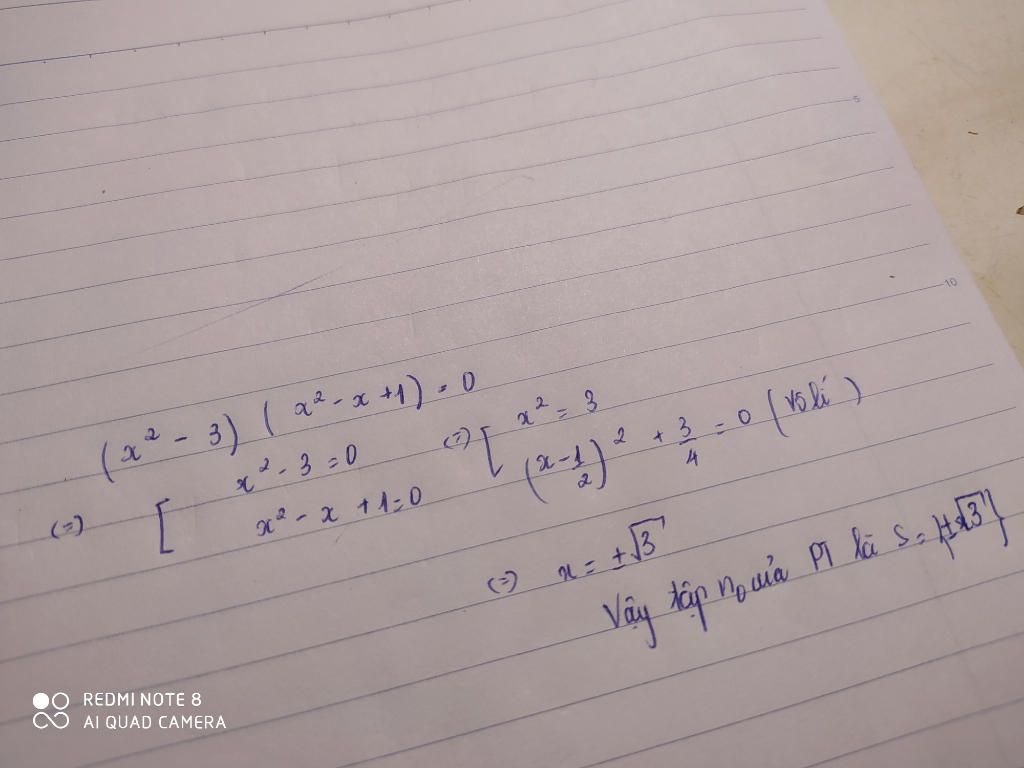 (x² - 3) (x² - x + 1) = 0
(=) [ x² - 3 = 0 (=) [ x² = 3
x² - x + 1 = 0 (x - 1/2)² + 3/4 = 0 (vô lí)
(=) x = ±√3
Vậy tập no của PT là S = {±√3}
5
10
REDMI NOTE 8
AI QUAD CAMERA